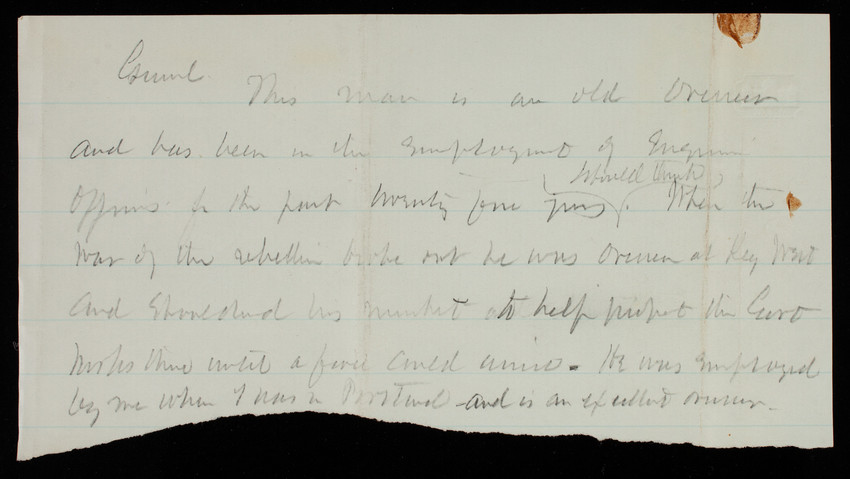 Genrl.
This man is an old Overseer
and has been in the Employment of Engineer
I should think
Officers for the past twenty five years. When the
War of the rebellion broke out he was Overseer at Key West
and Shouldered his musket to help protect the Govt
Works there until a force could arrive. He was Employed
by me when I was in Portland and is an excellent overseer.